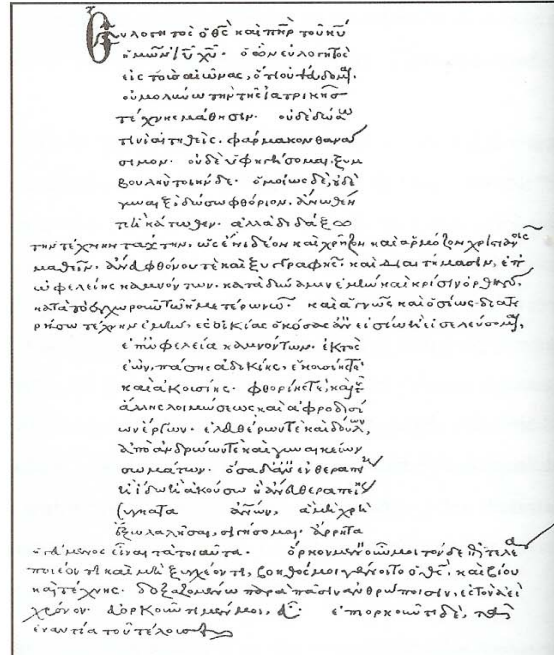 Εὐλογητὸς ὁ θς καὶ πηρ τοῦ κυ
ἡμῶν ιυ χυ. ὁ ὢν εὐλογητὸς
εἰς τοὺς αἰῶνας, ὅτι οὐ ψεύδομαι
οὐ μολύνω τὴν τῆς ἰατρικῆς
τέχνης μάθησιν. οὐδὲ δώσω
τινὶ αἰτηθεὶς φάρμακον θανά
σιμον. οὐδὲ ὑφηγήσομαι ξυμ
βουλὴν τοιήνδε. ὁμοίως δὲ, οὐδὲ
γυναιξὶ δώσω φθόριον. ἄνωθεν
ἢ κάτωθεν. ἀλλὰ διδάξω
τὴν τέχνην ταύτην, καὶ χριστιανοῖς
μαθεῖν. ἄνευ φθόνου τε καὶ ξυγγραφῆς. καὶ διαιτήμασιν, ἐπ
ὠφελείης καμνόντων. κατὰ δύναμιν ἐμὴν καὶ κρίσιν
καὶ ἁγνῶς καὶ ὁσίως διατη
ρήσω τέχνην ἐμὴν, ἐς οἰκίας ὁκόσας ἂν εἰσίω εἰσελεύσομαι,
ἐπ ὠφελεία καμνόντων. ἐκτὸς
ἐὼν, πάσης ἀδικίης, ἑκουσίης τὲ
καὶ ἀκουσίης. φθορίης τὲ, καὶ τῆς
ἄλλης λοιμώσεως καὶ ἀφροδισί
ων ἔργων. ἐλευθέρων τὲ καὶ δούλων,
ἀπὸ ἀνδρώων τὲ καὶ γυναικείων
σωμάτων. ὅσα δ' ἂν ἐν θεραπη
ἢ ἴδω ἢ ἀκούσω ἢ ἄνευ θεραπηί
ης κατὰ ἀνων, ἃ μὴ χρὴ
ἔξω λαλῆσαι, σιγήσομαι. ἄρρητα
ἡγεύμενος εἶναι τὰ τοιαῦτα. ὅρκον μὲν οὖν μοι τόνδε ἐπιτελέα
ποιέοντι καὶ μὴ ξυγχέοντι, βοηθός μοι γένοιτο ὁ θς, καὶ βίου
καὶ τέχνης. δοξαζομένω παρὰ πᾶσιν ἀνθρώποισιν, ἐς τὸν ἀεὶ
χρόνον. εὐορκοῦντι μὲν μοι, εὖ. ἐπιορκοῦντι δὲ,
ἐναντία τουτέοισιν